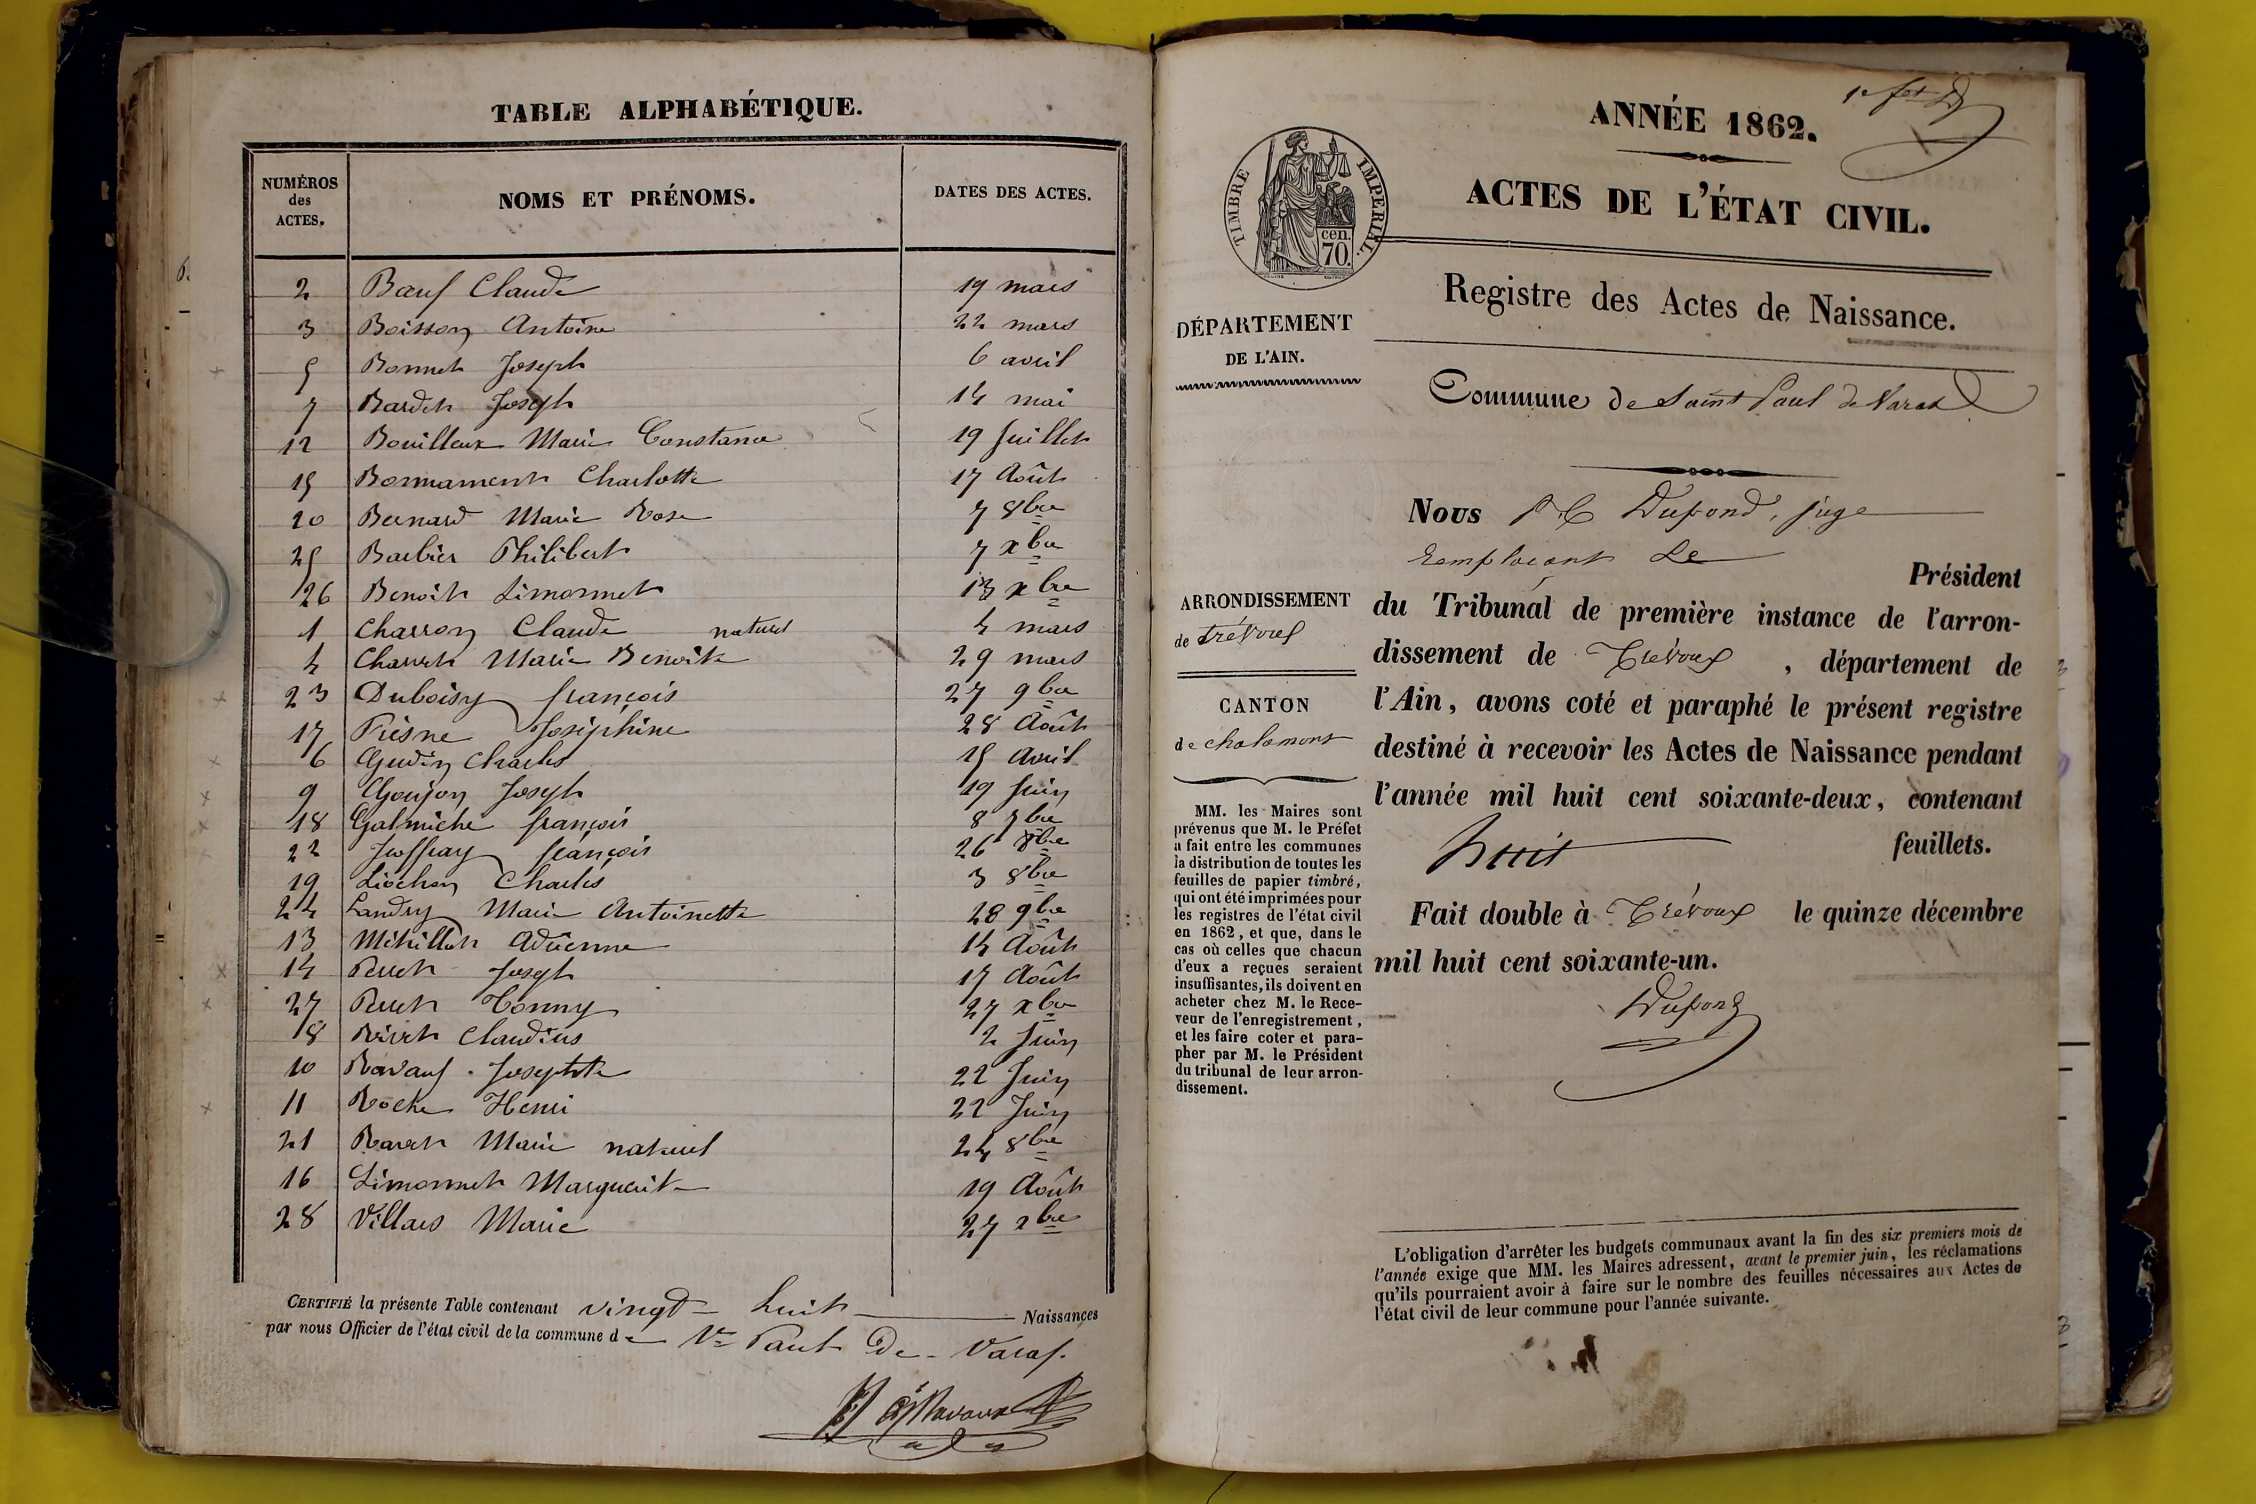 TABLE ALPHABÉTIQUE.
NUMÉROS des ACTES. NOMS ET PRÉNOMS. DATES DES ACTES.
2 Bœuf Claude 19 mars
3 Boisson Antoine 22 mars
5 Bonnet Joseph 6 avril
7 Bardet Joseph 14 mai
12 Bouilloux Marie Constance 19 Juillet
15 Bonnament Charlotte 17 Août
20 Bernard Marie Rose 7 8bre
25 Barbier Philibert 7 xbre
26 Benoit Limonnet 13 xbre
1 Charron Claude naturel 4 mars
4 Charvet Marie Benoite 29 mars
23 Duboisy françois 27 9bre
17 Fresne Joséphine 28 Août
6 Gudin Charles 15 Avril
9 Goujon Joseph 19 Juin
18 Galmiche françois 8 7bre
22 Joffray françois 26 8bre
19 Liochon Charles 3 8bre
24 Landry Marie Antoinette 28 9bre
13 Adrienne 14 Août
14 Perret Joseph 17 Août
27 Perret Tonny 27 xbre
8 Rivet Claudius 2 Juin
10 Ravaux Josephte 22 Juin
11 Roche Henri 22 Juin
21 Ravet Marie naturel 24 8bre
16 Limonnet Marguerite 19 Août
28 Villars Marie 27 xbre
CERTIFIÉ la présente Table contenant vingt-huit Naissances
par nous Officier de l'état civil de la commune de St Paul De Varax.
ANNÉE 1862.
ACTES DE L'ÉTAT CIVIL.
TIMBRE IMPERIAL.
cen.
70.
Registre des Actes de Naissance.
DÉPARTEMENT
DE L'AIN.
Commune de Saint Paul de Varax
Nous Dupond, juge
remplaçant Le
Président
ARRONDISSEMENT
de Trévoux
CANTON
de chalamont
du Tribunal de première instance de l'arron-
dissement de Trévoux, département de
l'Ain, avons coté et paraphé le présent registre
destiné à recevoir les Actes de Naissance pendant
l'année mil huit cent soixante-deux, contenant
huit feuillets.
Fait double à Trévoux le quinze décembre
mil huit cent soixante-un.
Dupond
MM. les Maires sont
prévenus que M. le Préfet
a fait entre les communes
la distribution de toutes les
feuilles de papier timbré,
qui ont été imprimées pour
les registres de l'état civil
en 1862, et que, dans le
cas où celles que chacun
d'eux a reçues seraient
insuffisantes, ils doivent en
acheter chez M. le Rece-
veur de l'enregistrement,
et les faire coter et para-
pher par M. le Président
du tribunal de leur arron-
dissement.
L'obligation d'arrêter les budgets communaux avant la fin des six premiers mois de
l'année exige que MM. les Maires adressent, avant le premier juin, les réclamations
qu'ils pourraient avoir à faire sur le nombre des feuilles nécessaires aux Actes de
l'état civil de leur commune pour l'année suivante.